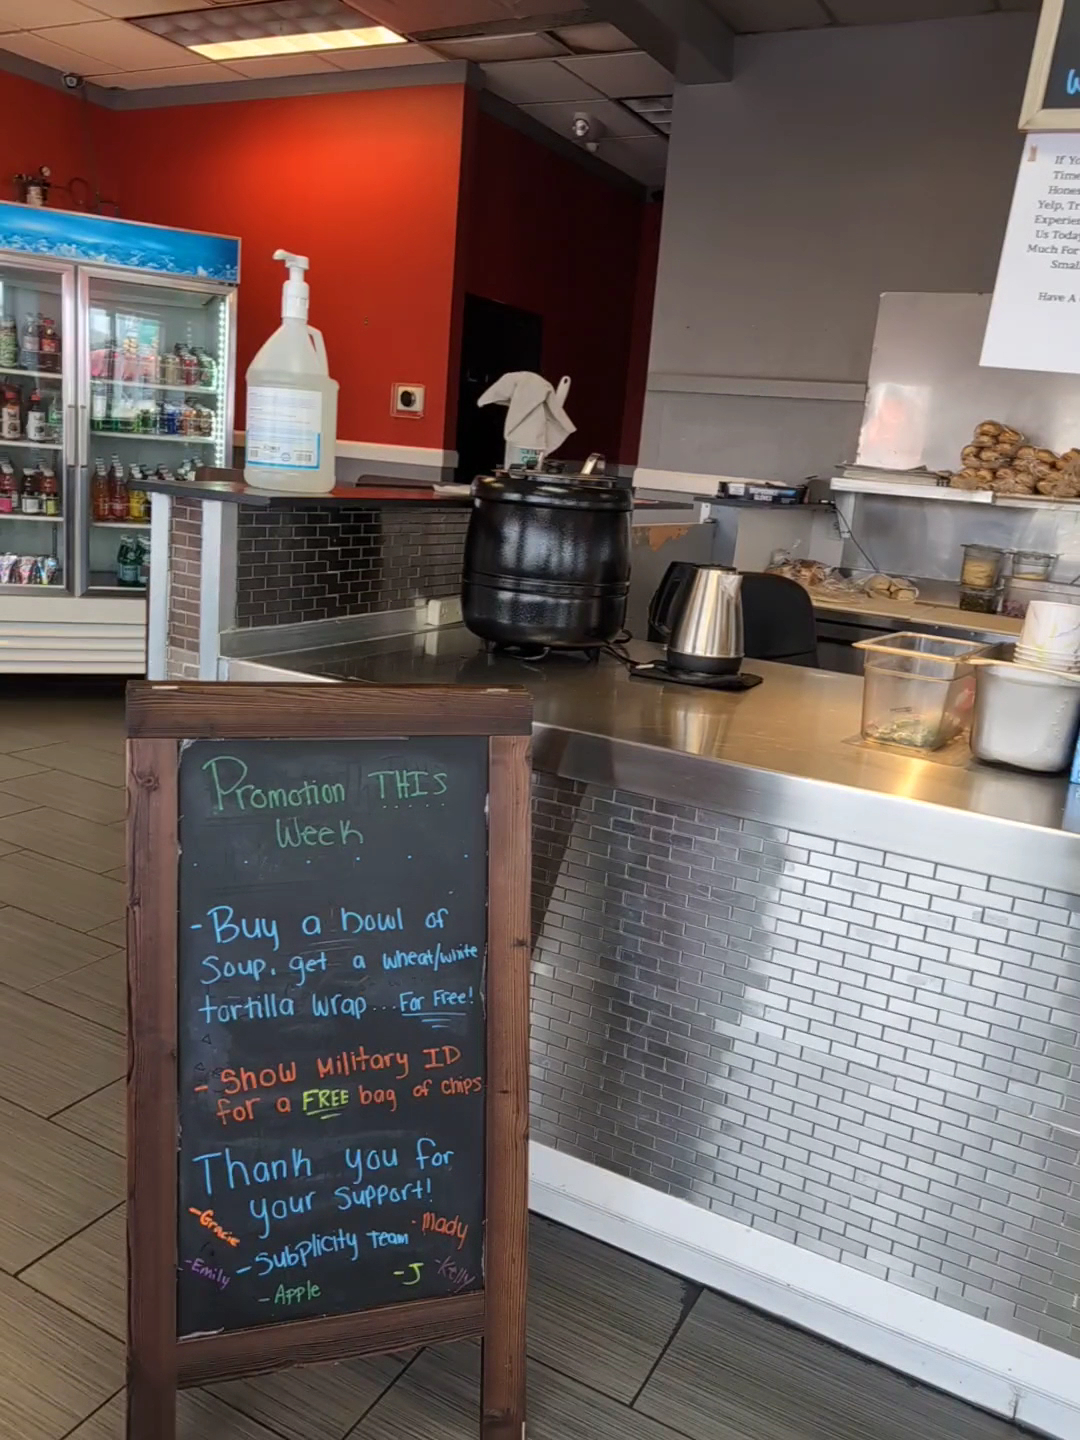 Promotion THIS
Week
- Buy a bowl of
Soup, get a wheat/white
tortilla wrap...For Free!
- Show Military ID
for a FREE bag of chips
Thank you for
your support!
- Subplicity Team
- Gracie
- Mady
- Emily
- J
- Kelly
- Apple
If Yo
Time
Hones
Yelp, Tr
Experien
Us Today
Much For
Small
Have A